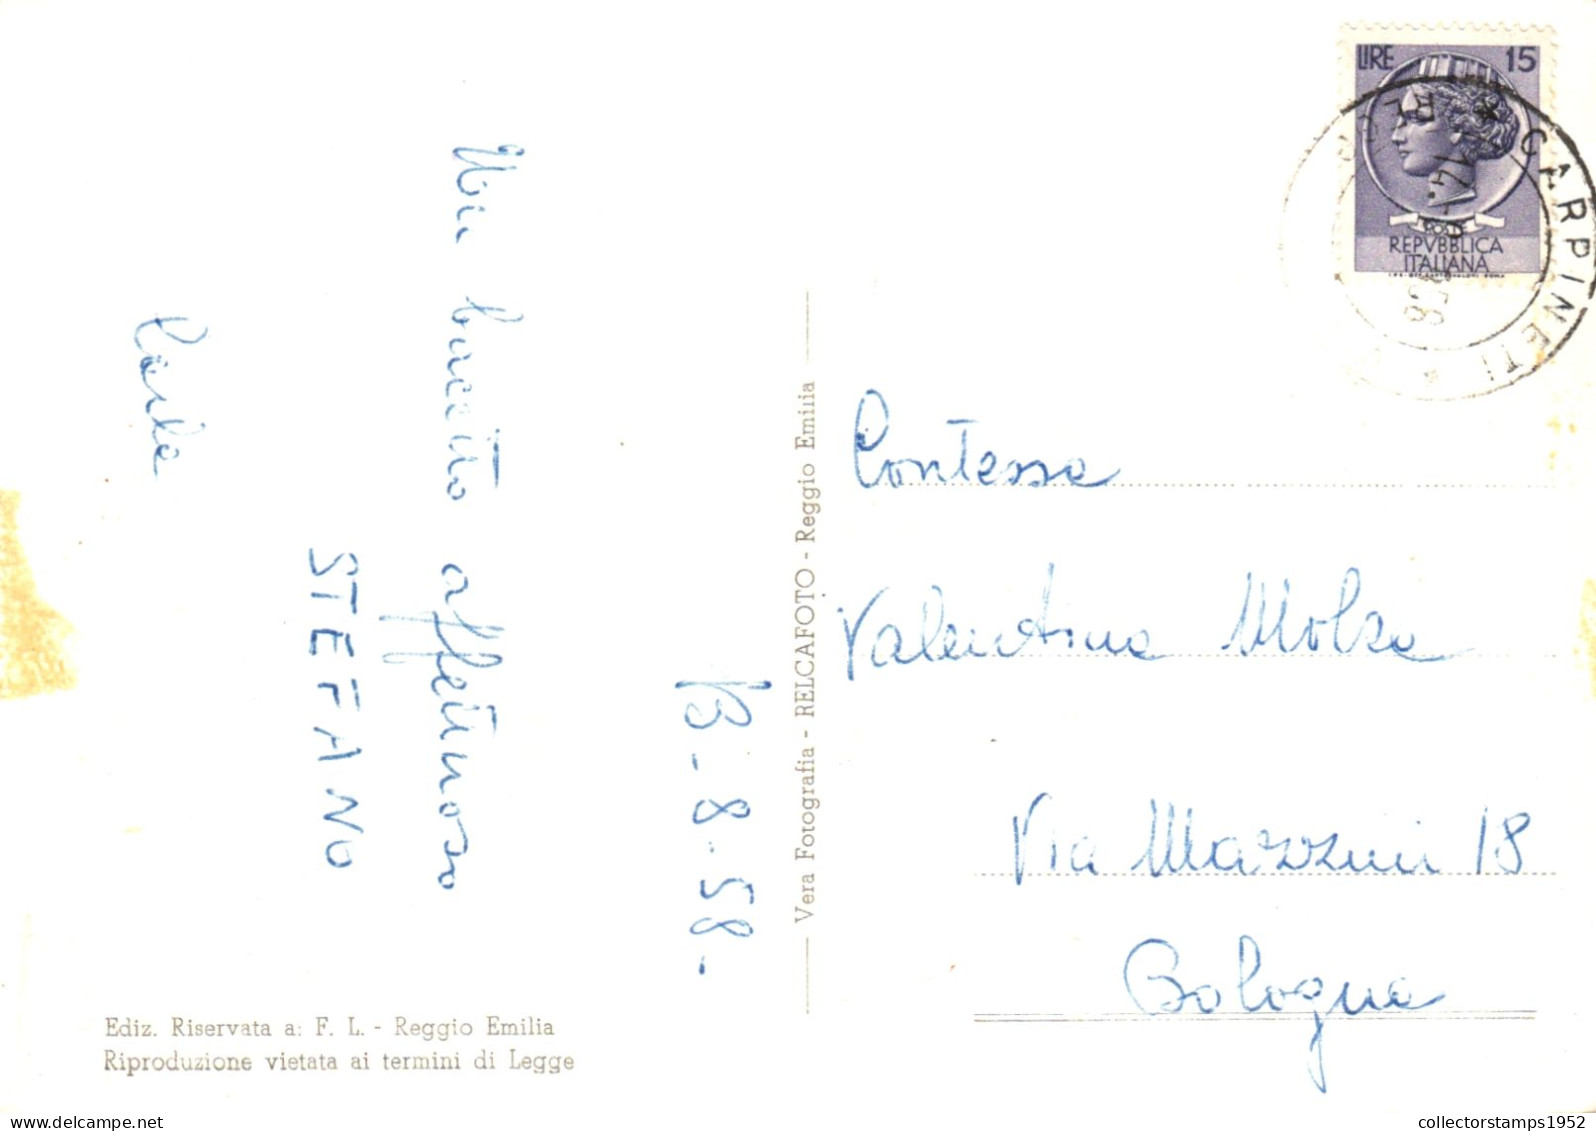 13-8-58-
Un bacetto affettuoso
STEFANO
Carla
Vera Fotografia - RELCAFOTO - Reggio Emilia
Ediz. Riservata a: F. L. - Reggio Emilia
Riproduzione vietata ai termini di Legge
LIRE 15
REPVBBLICA
ITALIANA
CARPINETI
Contessa
Valentina Molza
Via Mazzini 18
Bologna
collectorstamps1952